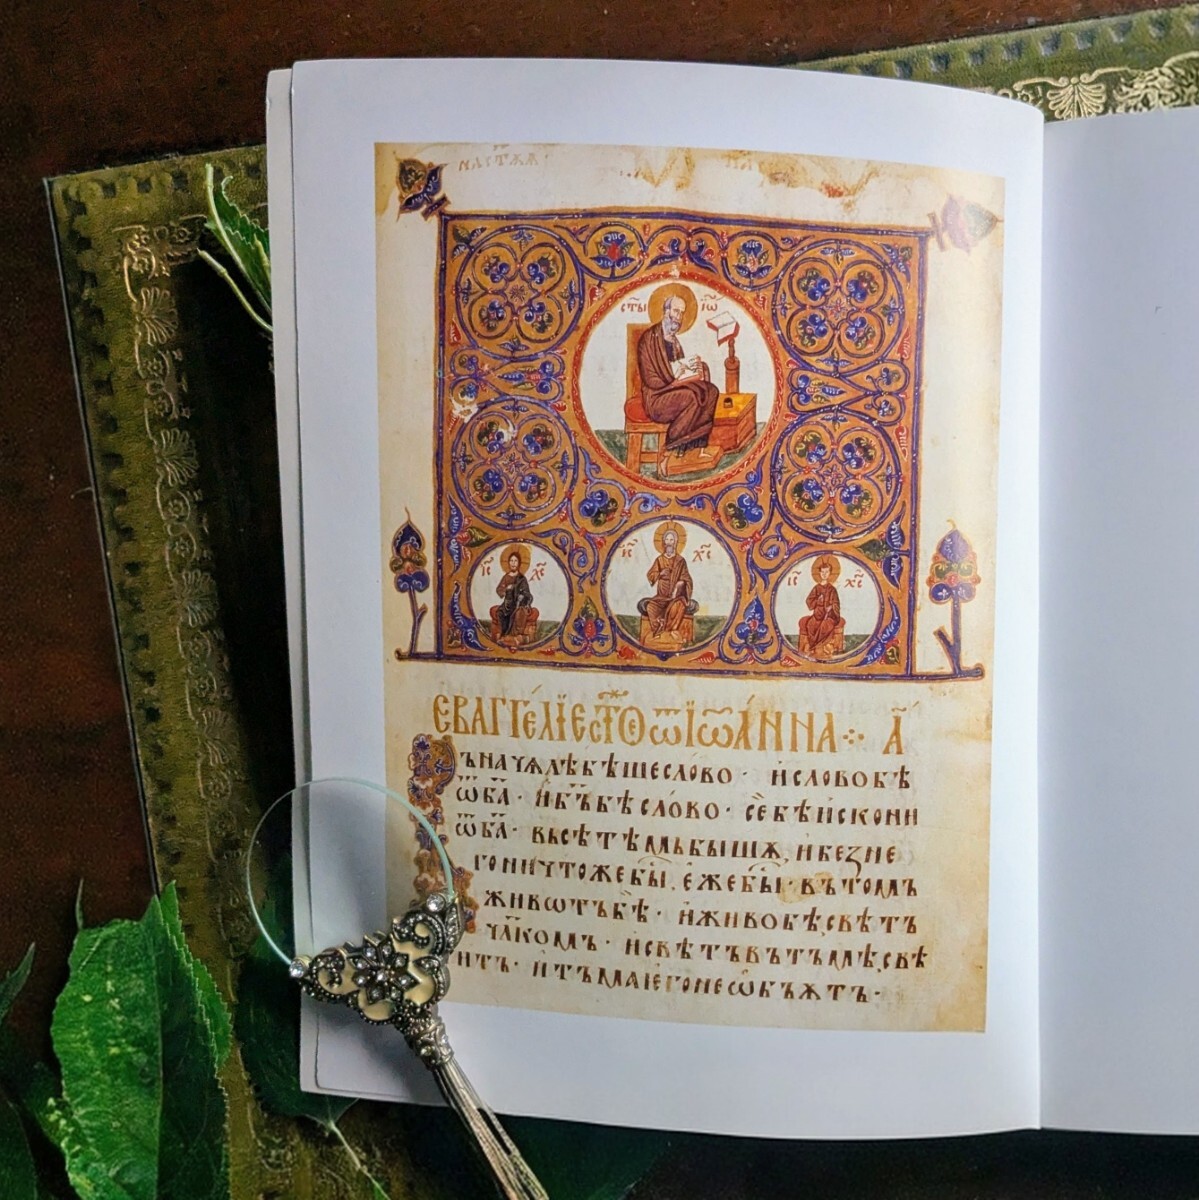 СТ҃Ы ІѠ҃
І҃С Х҃С
І҃С Х҃С
І҃С Х҃С
ЕВАГГЕ́ЛЇЕ СТ҃ОЕ Ѿ ЇѠА́ННА А҃
ЪНАЧѦЛѢБѢШЕСЛО́ВО · ИСЛОВОБѢ
Ѿ Б҃А · И Б҃Ъ БѢ СЛО́ВО · СЕ БѢ ИСКОНИ
Ѿ Б҃А · ВЬСѢ ТѢМЬ БЫШѦ, И БЕЗ НЕ
ГО НИЧТОЖЕ БЫ, Е́ЖЕ БЫ · ВЪ ТОМЪ
ЖИВѠТЪ БѢ · И ЖИВО БѢ, СВѢТЪ
Ч҃ЛКОМЪ · И СВѢТЪ ВЪ ТЪМѢ, СВѢ
ИТЪ · И ТЪМА ІЕГО НЕ ѠБЪѪТЪ ·